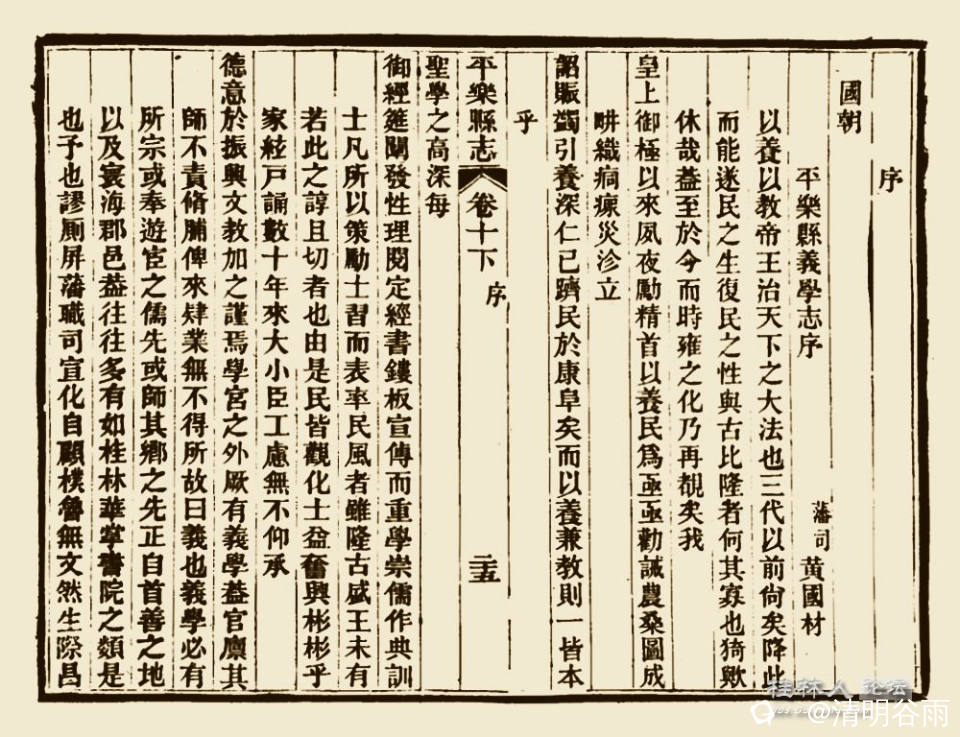 序
國朝
平樂縣義學志序 藩司 黄國材
以養以教帝王治天下之大法也三代以前尙矣降此
而能遂民之生復民之性與古比隆者何其寡也猗歟
休哉葢至於今而時雍之化乃再覩矣我
皇上御極以來夙夜勵精首以養民爲亟亟勸誡農桑圖成
畊織痌瘝災沴立
詔賑蠲引養深仁已躋民於康阜矣而以養兼教則一皆本
乎
平樂縣志 卷十下 序 二五
聖學之高深每
御經筵闡發性理閱定經書鏤板宣傳而重學崇儒作典訓
士凡所以策勵士習而表率民風者雖隆古盛王未有
若此之諄且切者也由是民皆觀化士益奮興彬彬乎
家絃戸誦數十年來大小臣工慮無不仰承
德意於振興文教加之謹焉學宮之外厥有義學葢官廪其
師不責脩脯俾來肄業無不得所故曰義也義學必有
所宗或奉遊宦之儒先或師其鄉之先正自首善之地
以及寰海郡邑葢往往多有如桂林華掌書院之類是
也予也謬厠屏藩職司宣化自顧樸魯無文然生際昌
桂林人 论坛
@清明谷雨